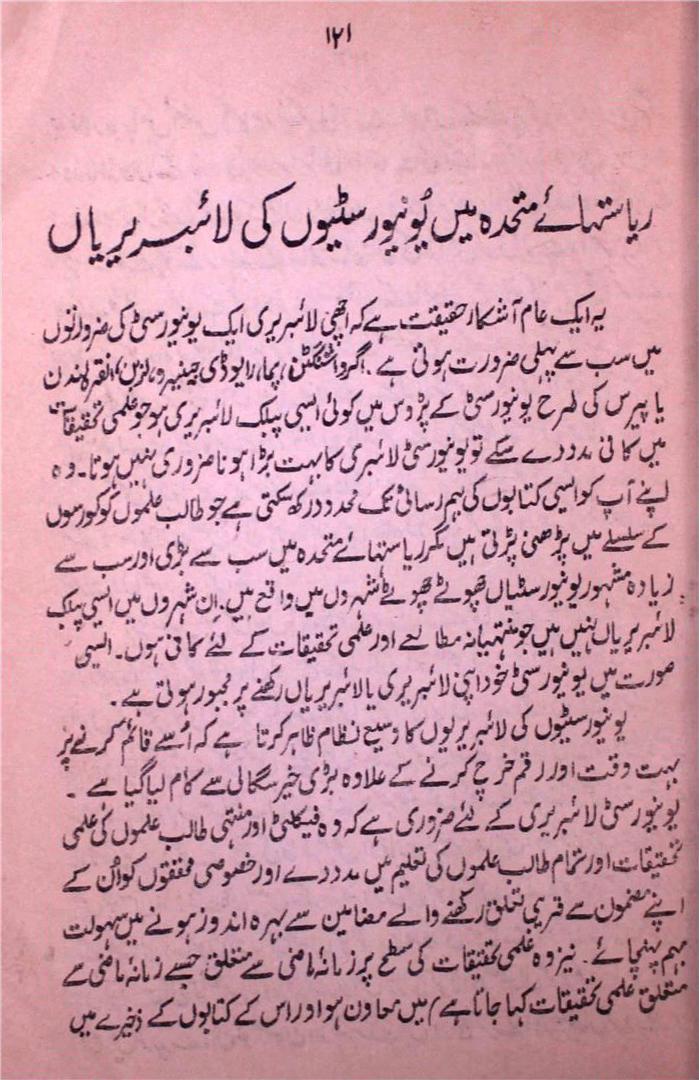 ۱۲۱
ریاستہائے متحدہ میں یُونیورسٹیوں کی لائبریریاں
یہ ایک عام آشکار حقیقت ہے کہ اچھی لائبریری ایک یونیورسٹی کی ضرورتوں
میں سب سے پہلی ضرورت ہوتی ہے۔ اگر واشنگٹن، پیما، رایو ڈی جینیرو، لزبن، انقرہ لندن
یا پیرس کی طرح یونیورسٹی کے پڑوس میں کوئی ایسی پبلک لائبریری ہو جو علمی تحقیقات
میں کافی مدد دے سکے تو یونیورسٹی لائبریری کا بہت بڑا ہونا ضروری نہیں ہوتا۔ وہ
اپنے آپ کو ایسی کتابوں کی بہم رسائی تک محدود رکھ سکتی ہے جو طالب علموں کو کورسوں
کے سلسلے میں پڑھنی پڑتی ہیں مگر ریاستہائے متحدہ میں سب سے بڑی اور سب سے
زیادہ مشہور یونیورسٹیاں چھوٹے چھوٹے شہروں میں واقع ہیں۔ اِن شہروں میں ایسی پبلک
لائبریریاں نہیں ہیں جو منتہیانہ مطالعے اور علمی تحقیقات کے لئے کافی ہوں۔ ایسی
صورت میں یونیورسٹی خود اپنی لائبریری یا لائبریریاں رکھنے پر مجبور ہوتی ہے۔
یونیورسٹیوں کی لائبریریوں کا وسیع نظام ظاہر کرتا ہے کہ اُسے قائم کرنے پر
بہت وقت اور رقم خرچ کرنے کے علاوہ بڑی خیر سگالی سے کام لیا گیا ہے۔
یونیورسٹی لائبریری کے لئے ضروری ہے کہ وہ فیکلٹی اور منتہی طالب علموں کی علمی
تحقیقات اور تمام طالب علموں کی تعلیم میں مدد دے اور خصوصی محققوں کو اُن کے
اپنے مضمون سے قریبی تعلق رکھنے والے مضامین سے بہرہ اندوز ہونے میں سہولت
بہم پہنچائے۔ نیز وہ علمی تحقیقات کی سطح پر زمانۂ ماضی سے متعلق جسے زمانۂ ماضی سے
متعلق علمی تحقیقات کہا جاتا ہے) میں معاون ہو اور اس کے کتابوں کے ذخیرے میں